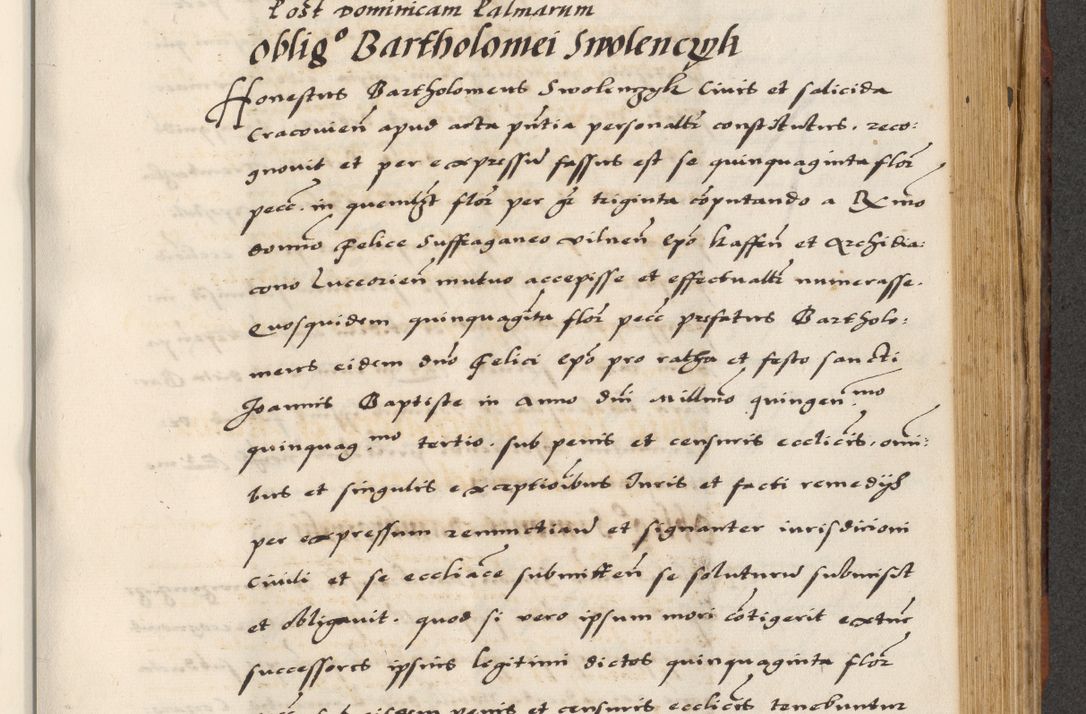 post Dominicam Palmarum
Oblig° Bartholomei Swolenczyk
Honestus Bartholomeus Swolenczyk Civis et salicida
Cracovien̄ apud acta pn̄tia personalr̄ constitutus. reco:
gnovit et per expressū fassus est se quinquaginta flor̄
pecc̄. in quemlꝫt flor̄ per gr̄ triginta cōputando a Rx mo
domno Felice Suffraganeo Vilnen̄ Epō Kaffen̄ et Archidia:
cono Luceorien̄ mutuo accepisse et effectualr̄ numerasse.
Quosquidem quinquagīta flor̄ pecc̄ prefatus Bartholo:
meus eidem dnō Felici Epō pro ratha et festo sancti
Joannis Baptiste in Anno dn̄i Millmō quingen mo
quinquag mo tertio. sub penis et censuris ecclīcis. omī:
bus et singulis exceptiōībus Juris et facti remedijs
per expressum renunctiand̄ et signanter iurisdicioni
Civili et se eccliāce submitten̄ se soluturū submisit
et obligavit. quod si vero ipsum mori cōtigerit extūc
successores ipsius legitimi dictos quinquaginta flor̄
sub eisdem penis et censuris ecclīcis tenebuntur